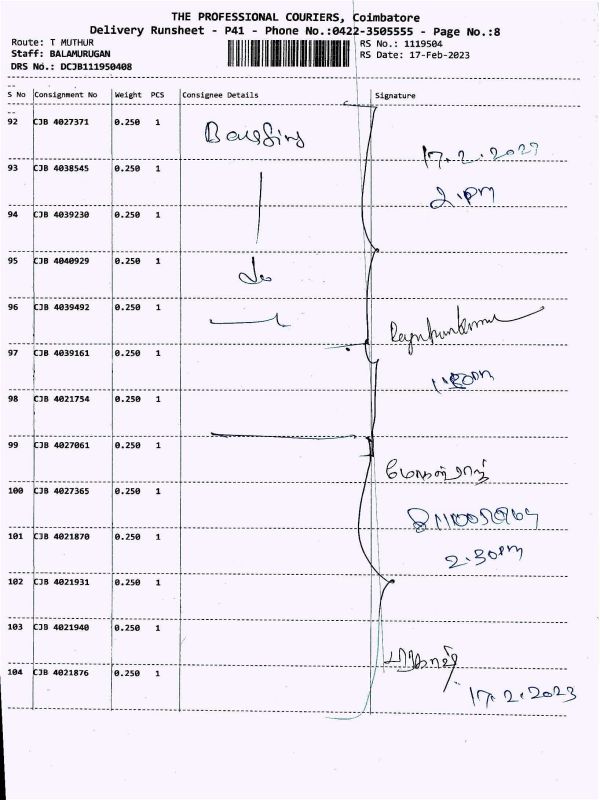 THE PROFESSIONAL COURIERS, Coimbatore
Delivery Runsheet - P41 - Phone No.:0422-3505555 - Page No.:8
Route: T MUTHUR
RS No.: 1119504
Staff: BALAMURUGAN
RS Date: 17-Feb-2023
DRS No.: DCJB111950408
S No Consignment No Weight PCS Consignee Details Signature
92 CJB 4027371 0.250 1
17.2.2023
93 CJB 4038545 0.250 1
2.pm
94 CJB 4039230 0.250 1
95 CJB 4040929 0.250 1
96 CJB 4039492 0.250 1
97 CJB 4039161 0.250 1
98 CJB 4021754 0.250 1
99 CJB 4027061 0.250 1
100 CJB 4027365 0.250 1
101 CJB 4021870 0.250 1
2.30pm
102 CJB 4021931 0.250 1
103 CJB 4021940 0.250 1
104 CJB 4021876 0.250 1
17.2.2023